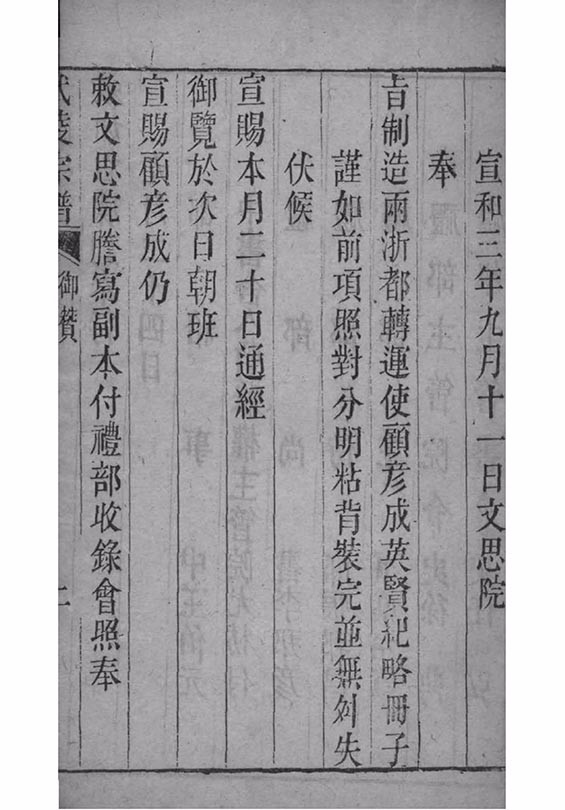 宣和三年九月十一日文思院
奉
旨制造兩浙都轉運使顧彦成英賢紀略冊子
謹如前項照對分明粘背裝完並無舛失
伏候
宣賜本月二十日通經
御覽於次日朝班
宣賜顧彦成仍
敕文思院謄寫副本付禮部收錄會照奉
武陵宗譜 御贊 二